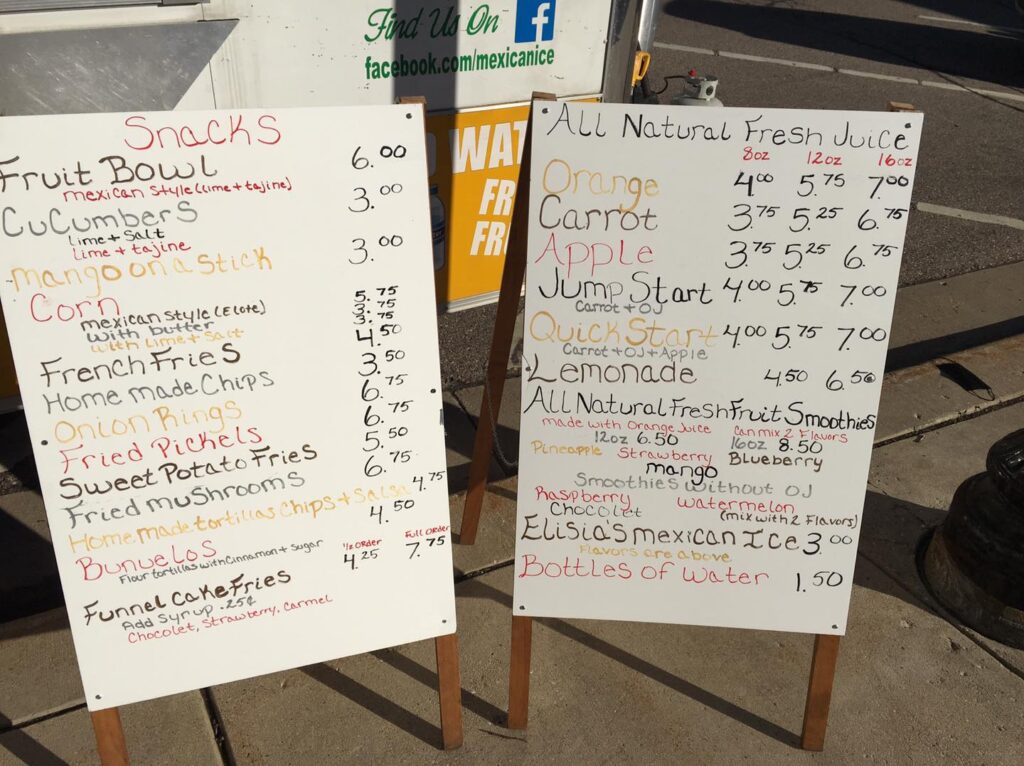 Find Us On f
facebook.com/mexicanice
WAT
FR
FR
Snacks
Fruit Bowl 6.00
mexican style (lime + tajine)
CuCumbers 3.00
Lime + Salt
Lime + tajine
mango on a Stick 3.00
Corn
mexican style (Elote) 5.75
with butter 3.75
with Lime + Salt 3.75
French Fries 4.50
Home made Chips 3.50
Onion Rings 6.75
Fried Pickels 6.75
Sweet Potato Fries 5.50
Fried mushrooms 6.75
Home made tortillas Chips + Salsa 4.75
Bunuelos 4.50
Flour tortillas with Cinnamon + Sugar
1/2 order Full Order
Funnel Cake Fries 4.25 7.75
Add Syrup .25¢
Chocolet, Strawberry, Carmel
All Natural Fresh Juice
8oz 12oz 16oz
Orange 4.00 5.75 7.00
Carrot 3.75 5.25 6.75
Apple 3.75 5.25 6.75
Jump Start 4.00 5.75 7.00
Carrot + OJ
Quick Start 4.00 5.75 7.00
Carrot + OJ + Apple
Lemonade 4.50 6.50
All Natural Fresh Fruit Smoothies
made with Orange Juice Can mix 2 Flavors
12oz 6.50 16oz 8.50
Pineapple Strawberry Blueberry
mango
Smoothies without OJ
Raspberry Watermelon
Chocolet (mix with 2 Flavors)
Elisia's mexican Ice 3.00
Flavors are above
Bottles of Water 1.50